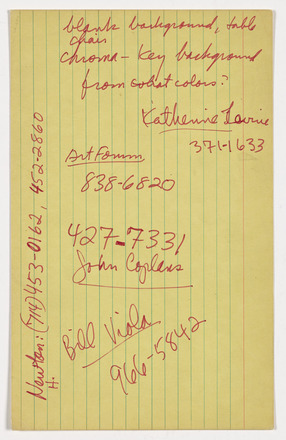 blank background, table
chair
chroma-key background
from what colors?
Katherine Lavine
371-1633
ArtForum
838-6820
427-7331
John Coplans
Bill Viola
966-5842
Newton: (714) 453-0162, 452-2860
H.